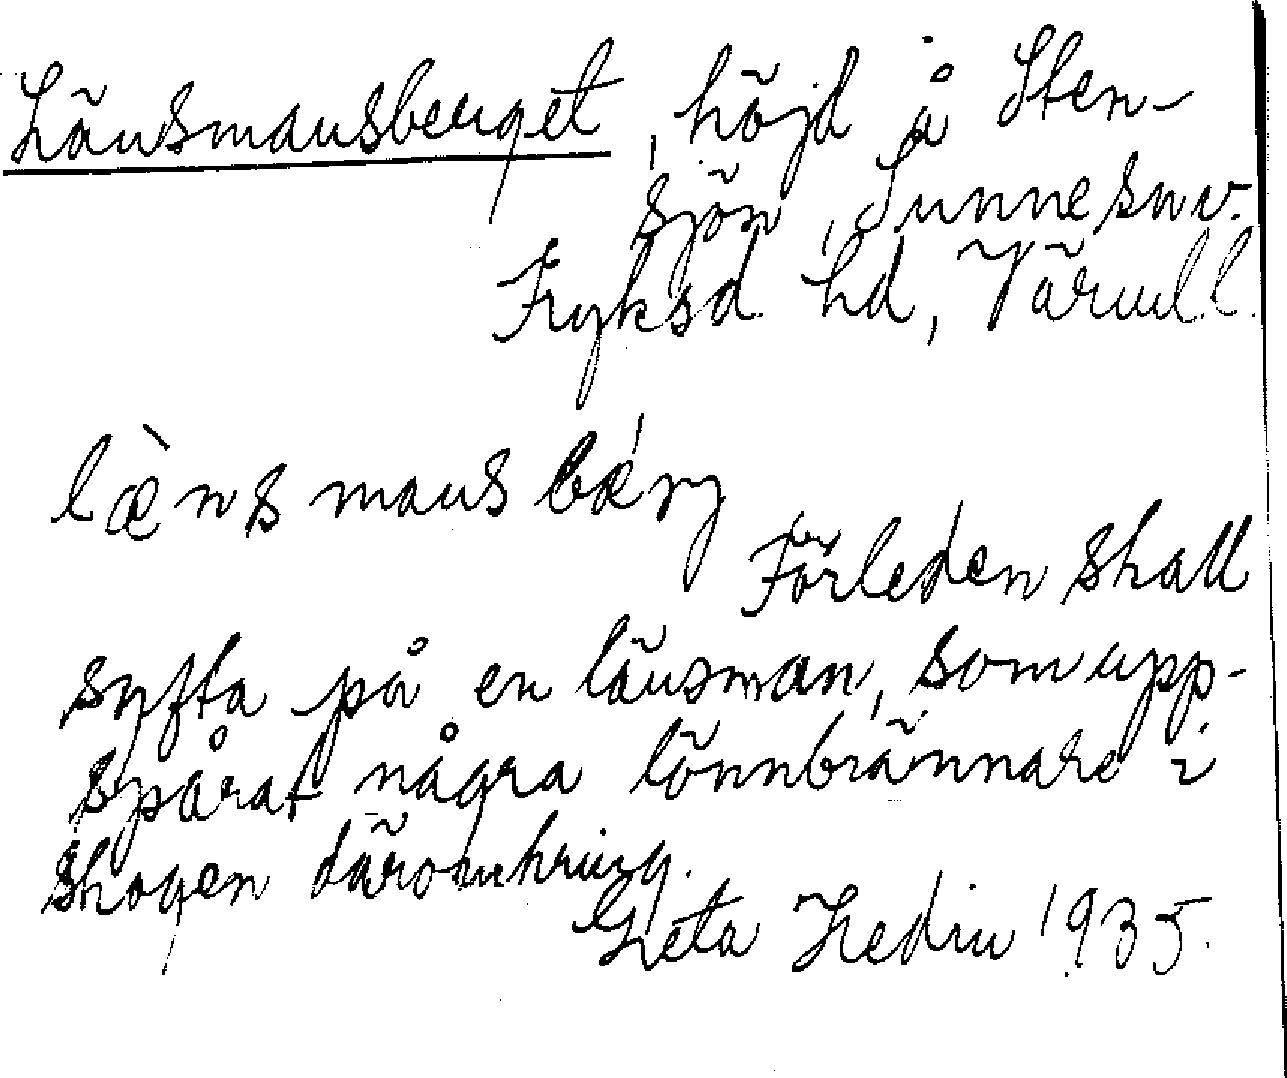 Länsmansberget, höjd å Sten-
sjön, Sunne snv.
Fryksd. hd, Värml. l.
læ̀nsmansbǽrj
Förleden skall
syfta på en länsman, som upp-
spårat några lönnbrännare i
skogen däromkring.
Greta Hedin 1935.